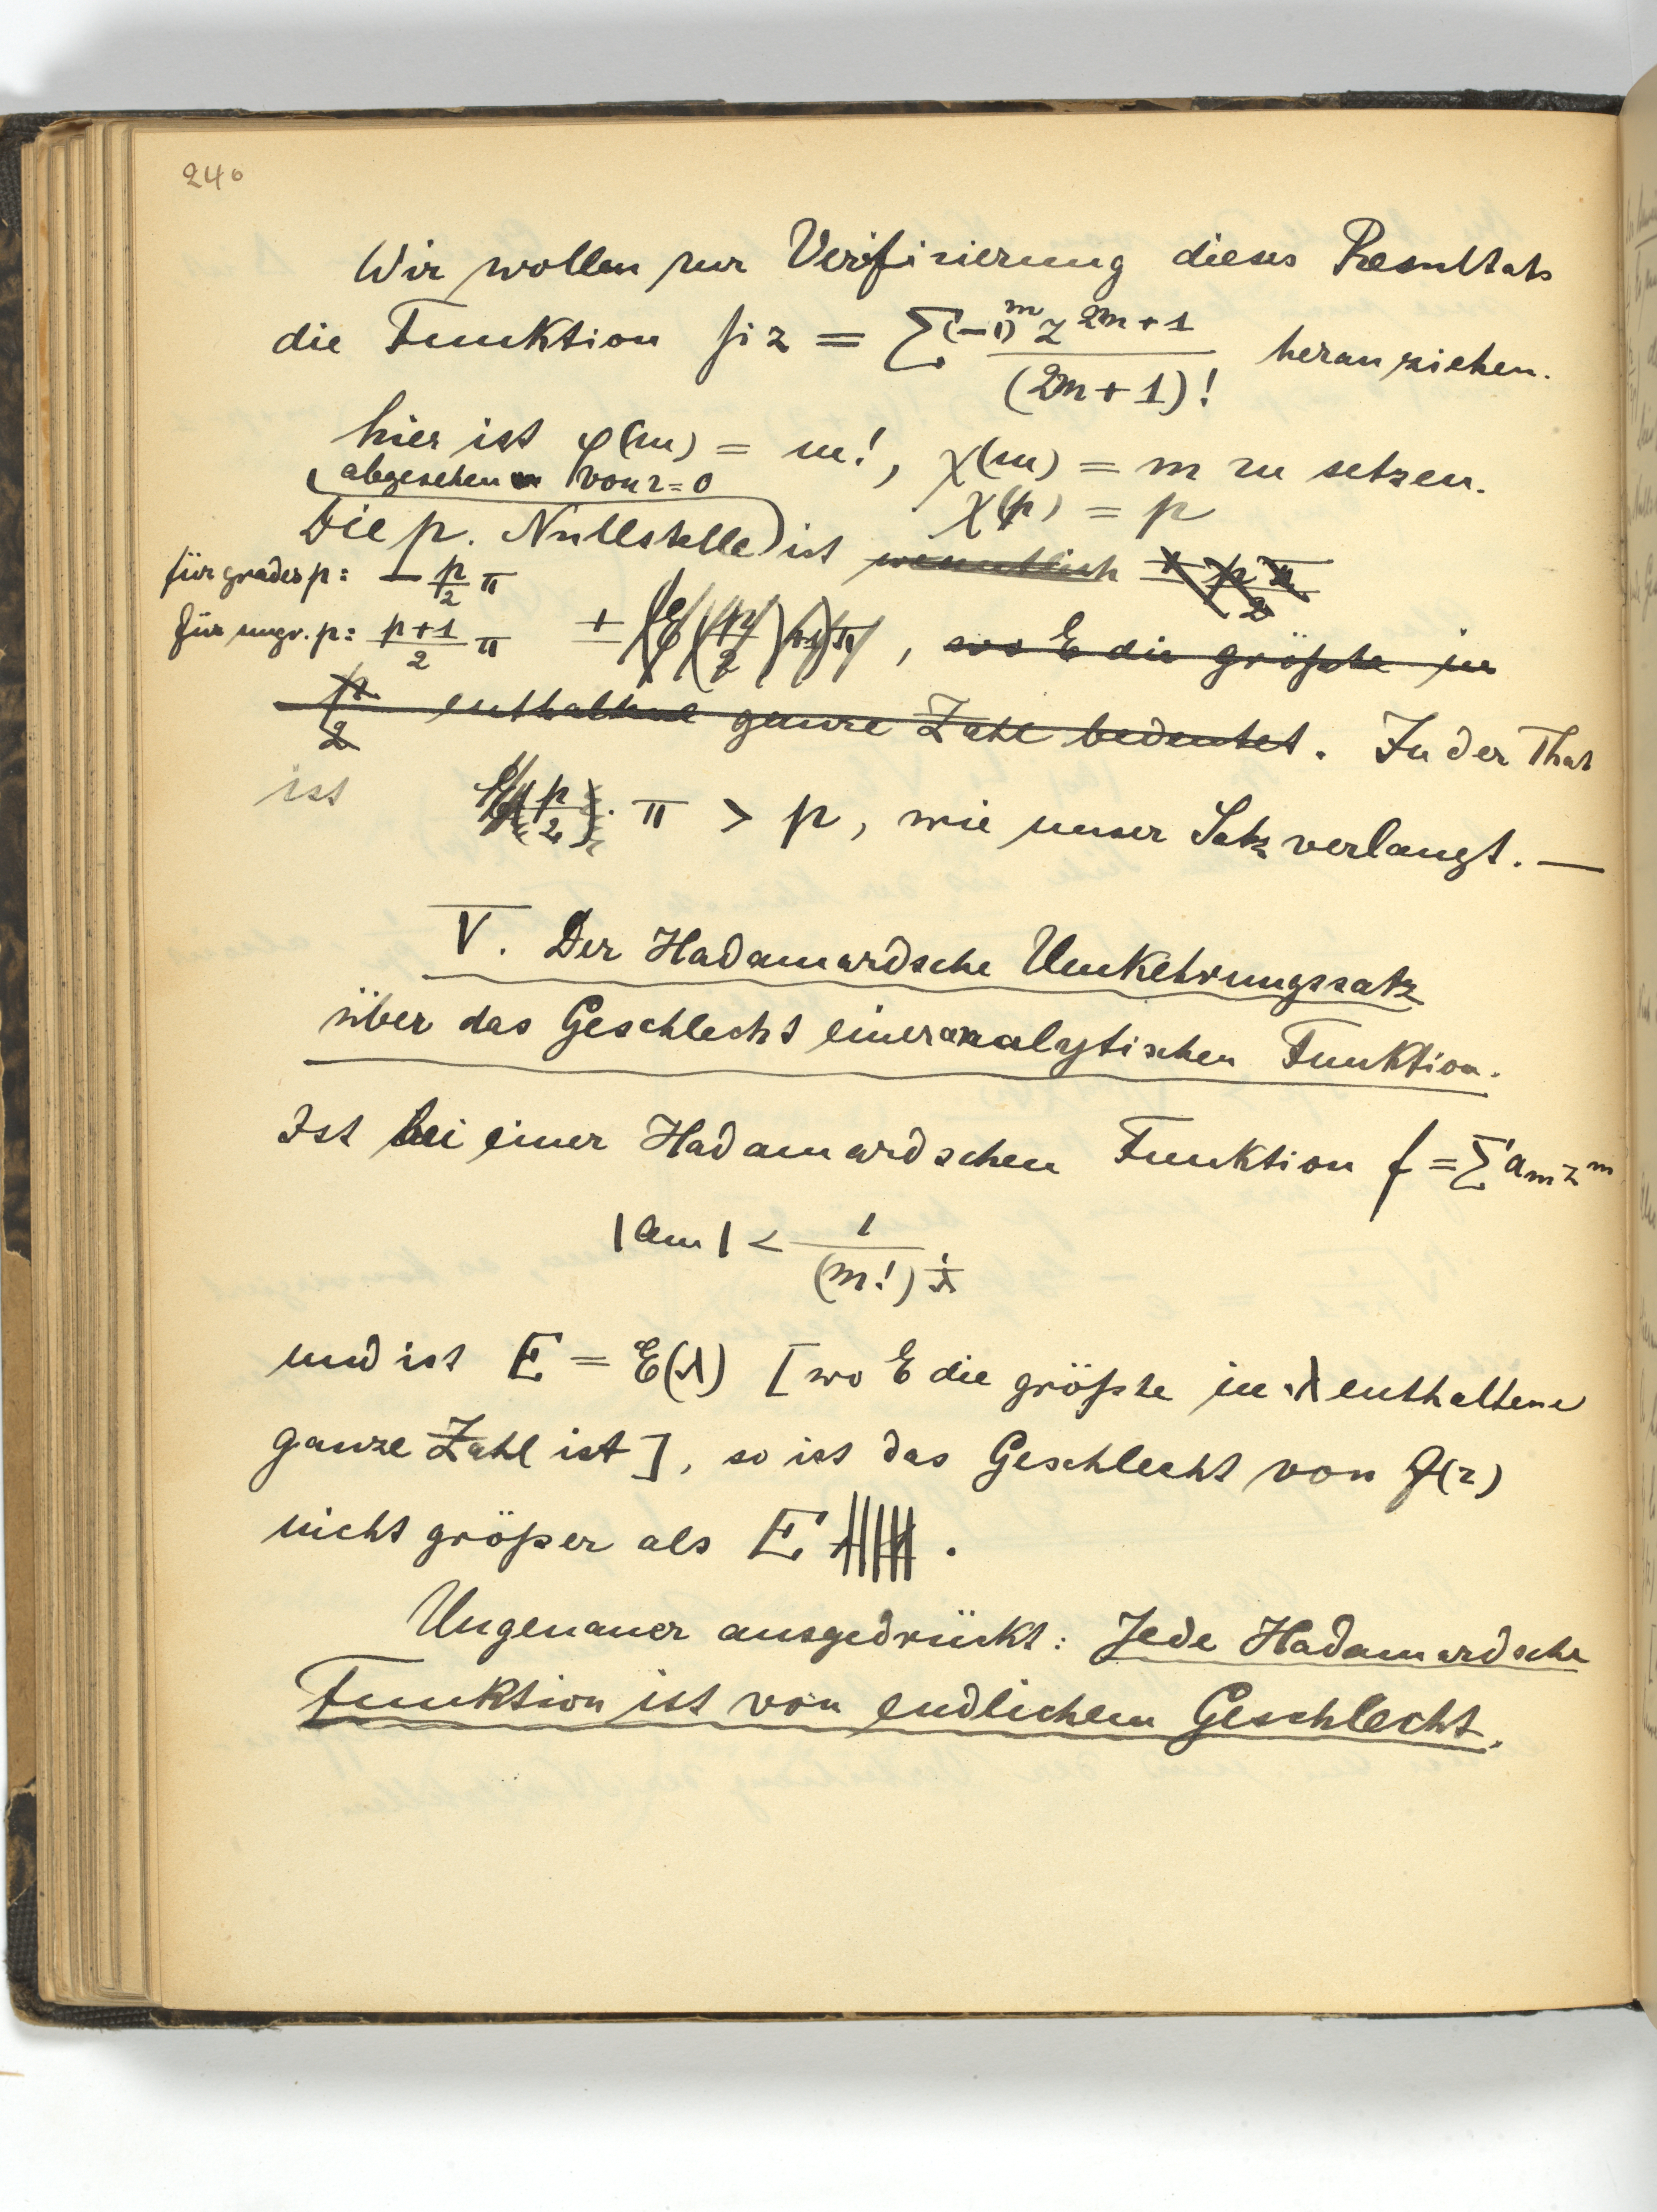 240
Wir wollen zur Verifizierung dieses Resultats
die Funktion si z = ∑ (-1)^m z^{2m+1} / (2m+1)! heranziehen.
hier ist φ(m) = m!, χ(m) = m zu setzen.
(abgesehen von z=0
χ(p) = p
Die p. Nullstelle) ist wesentlich ± p π / 2
für grades p: - p/2 π
für ungr. p: p+1/2 π ± (E(p/2)+1)π, wo E die größte in
p/2 enthaltene ganze Zahl bedeutet. In der That
ist E(p/2) · π > p, wie unser Satz verlangt. —
V. Der Hadamardsche Umkehrungssatz
über das Geschlecht einer analytischen Funktion.
Ist bei einer Hadamardschen Funktion f = ∑ a_m z^m
|a_m| < 1 / (m!)^{1/λ}
und ist E = E(λ) [wo E die größte in λ enthaltene
ganze Zahl ist], so ist das Geschlecht von f(z)
nicht größer als E .
Ungenauer ausgedrückt: Jede Hadamardsche
Funktion ist von endlichem Geschlecht.